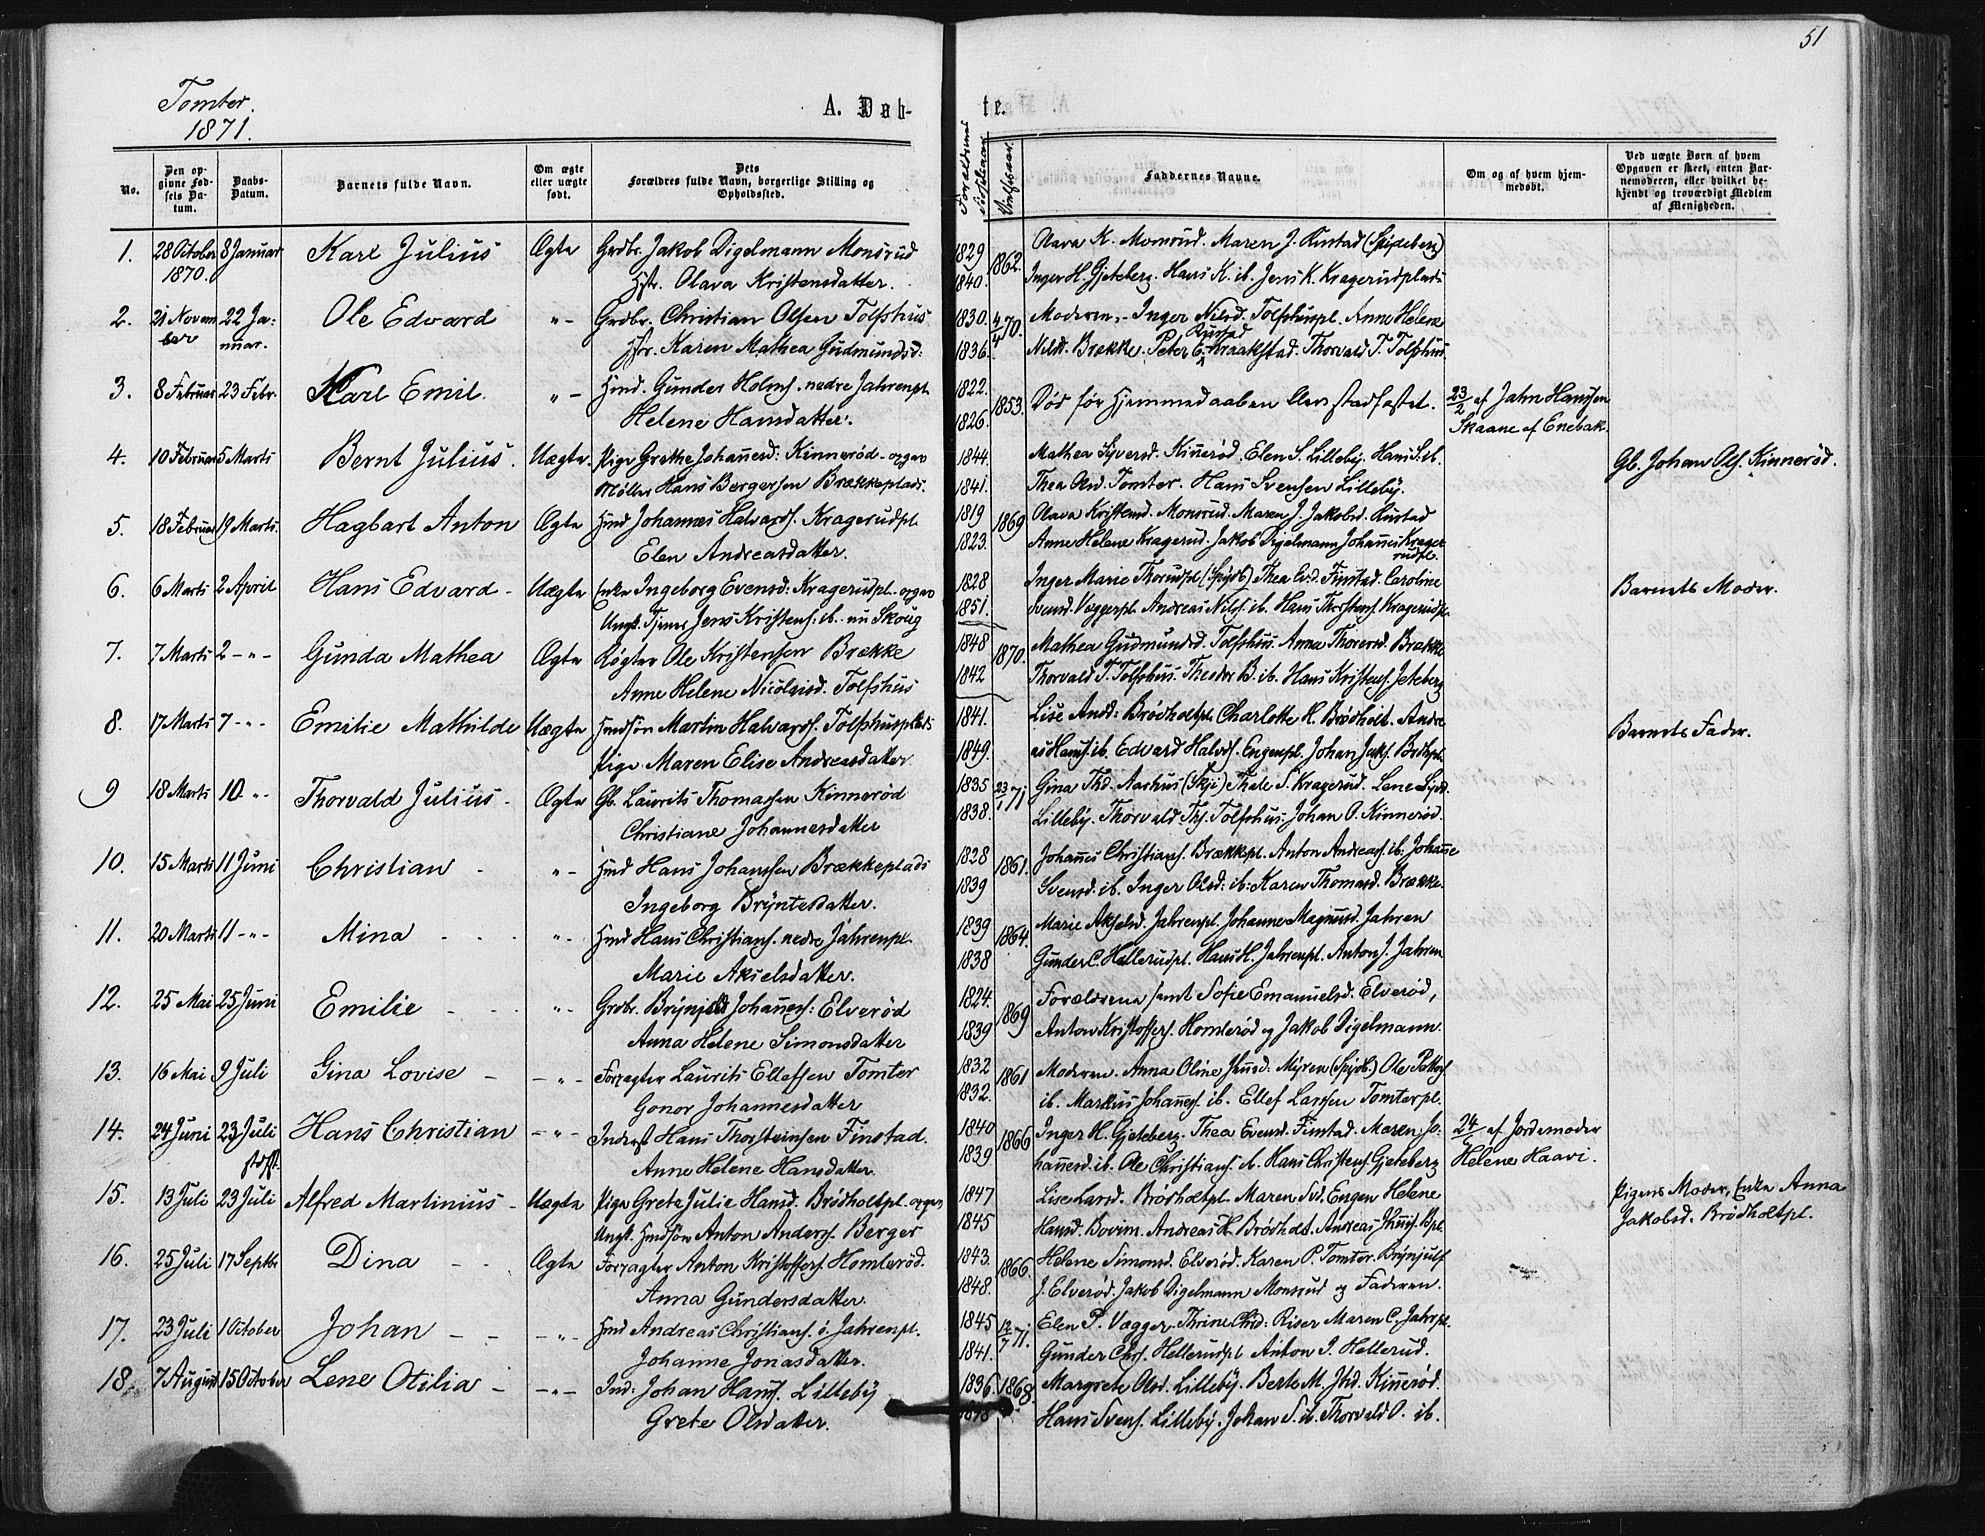 51
Tomter.
1871.
A. Døb-
te.
No.
Den op-
givne Fød-
sels Da-
tum.
Daabs-
Datum.
Barnets fulde Navn.
Om ægte
eller uægte
født.
Dets
Forældres fulde Navn, borgerlige Stilling og
Opholdssted.
Forældrenes
Fødselsaar
Vielsesaar.
Faddernes Navne.
Om og af hvem hjem-
medøbt.
Ved uægte Børn af hvem
Opgaven er skeet, enten Bar-
nemoderen, eller hvilket be-
kjendt og troværdigt Medlem
af Menigheden.
1. 28 October 8 Januar Karl Julius Ægte Grdbr. Jakob Digelmann Monsrud 1829 1862. Olava K. Monsrud. Maren J. Rustad (Spideberg)
1870. Hstr. Olava Kristensdatter. 1840. Inger H. Gjeteberg. Hans K. ib. Jens K. Kragerudplads
2. 21 Novem 22 Ja- Ole Edvard "- Grdbr. Christian Olsen Tolfshus 1830 4/4 70. Moderen,- Inger Nilsd. Tolfshuspl. Anne Helene
ber nuar. Hstr. Karen Mathea Gudmundsd: 1836. Nilsd. Brække. Peter C. Rustad Kraakstad. Thorvald T. Tolfshus
3. 8 Februar 23 Febr. Karl Emil. "- Hmd. Gunder Holms. nedre Jahrenpl 1822. 1853. Død før Hjemmedaaben blev stadfæstet. 23/2 af Jahn Hanssen
Helene Hansdatter. 1826. Skaane af Enebak.
4. 10 Februar 5 Marts Bernt Julius. Uægte. Pige Grethe Johannesd: Kinnerød - opgav 1844. Mathea Syversd. Kinnerød. Elen S. Lilleby. Hans S. ib. Gb. Johan Ols. Kinnerød.
Møller Hans Bergersen Brækkeplads. 1841. Thea Olsd. Tomter. Hans Svensen Lilleby.
5. 18 Februar 19 Marts. Hagbart Anton Ægte Hmd Johannes Halvards. Kragerudpl. 1819 1869 Olava Kristensd. Monsrud. Maren J. Jakobsd. Rustad
Elen Andreasdatter. 1823. Anne Helene Kragerud. Jakob Digelmann Johannes Krage-
rudpl.
6. 6 Marts 2 April Hans Edvard - Uægte Enke Ingeborg Evensd: Kragerudpl. opgav 1828 Inger Marie Thorudpl (Spydb) Thea Evd. Finstad. Caroline Barnets Moder.
Ungk. Tjener Jens Kristens. ib. - nu Skoug 1851. Svensd. Væggerpl. Andreas Nils. ib. Hans Thorstens. Kragerudpl.
7. 7 Marts 2 -"- Gunda Mathea Ægte Røgter Ole Kristensen Brække 1848 1870. Mathea Gudmundsd. Tolfshus. Anna Thorersd. Brække
Anne Helene Nicolaisd. Tolfshus 1842 Thorvald T. Tolfshus. Theodor B. ib. Hans Kristens. Jeteberg
8. 17 Marts 7 -"- Emilie Mathilde Uægte Hmdsøn Martin Halvards. Tolfshusplads 1841. Lise Andd: Brødholtpl. Charlotte H. Brødholt. Andre Barnets Fader.
Pige Maren Elise Andreasdatter 1849. as Hans. ib. Edvard Halvds. Engenpl. Johan Jaks. Brdhpl.
9 18 Marts 10 "- Thorvald Julius - Ægte Gb. Laurits Thomassen Kinnerød 1835 23/1 71 Gina Thd. Aarhus (Skji) Thale S. Kragerud. Lene Sydd.
Christiane Johannesdatter 1838. Lilleby. Thorvald Ths. Tolfshus. Johan O. Kinnerød.
10. 15 Marts 11 Juni Christian "- Hmd Hans Johanssen Brækkeplads 1828 1861. Johannes Christians. Brækkepl. Anton Andreass. ib: Johanne
Ingeborg Brÿntesdatter. 1839 Svensd. ib. Inger Olsd: ib: Karen Thomasd. Brække.
11. 20 Marts 11 -"- Mina "- Hmd Hans Christians. nedre Jahrenpl. 1839 1864. Marie Akselsd. Jahrenpl. Johanne Magnusd. Jahren
Marie Akselsdatter. 1838 Gunder C. Hellerudpl. Hans H. Jahrenpl. Anton J. Jahren
12. 25 Mai 25 Juni Emilie "- Grdbr. Brynjulf Johannes: Elverød 1824. 1869 Forældrene samt Sofie Emanuelsd. Elverød,
Anna Helene Simonsdatter 1839 Anton Kristoffers. Homlerød og Jakob Digelmann.
13. 16 Mai 9 Juli Gina Lovise - -"- Forpagter Laurits Ellefsen Tomter 1832 1861 Moderen. Anna Oline Jensd: Mÿren (Spydb.) Ole
Gonor Johannesdatter 1832. ib. Markus Johannes. ib. Ellef Larssen Tomterpl.
14. 24 Juni 23 Juli Hans Christian -"- Inderst Hans Thorsteinsen Finstad. 1840 1866 Inger H. Gjeteberg. Thea Evensd. Finstad. Maren Jo- 24/6 af Jordemoder
stdfst. Anne Helene Hansdatter 1839 hannesd. ib. Ole Christians. ib. Hans Christens. Gjeteberg Helene Haavi.
15. 13 Juli 23 Juli Alfred Martinius - Uægte Pige Grete Julie Hansd. Brødholtpl. - opgav 1847 Lise Larsd. Brødholtpl. Maren Svd. Engen Helene Pigens Moder, Enke Anna
Ungk. Hmdsøn Anton Anders. Berger 1845 Hansd. Bovim. Andreas H. Brødholt. Andreas Jhnns. Bpl. Jakobsd. Brødholtpl.
16. 25 Juli 17 Septbr Dina Ægte Forpagter Anton Kristoffers. Homlerød. 1843. 1866. Helene Simonsd. Elverød. Karen P. Tomter. Brÿnjulf
Anna Gundersdatter. 1848. J. Elverød. Jakob Digelmann Monsrud og Faderen.
17. 23 Juli 1 October Johan - - -"- Hmd Andreas Christians. ö. Jahrenpl. 1845 12/7 71. Elen P. Vægger. Thrine Chrd: Riser Maren C. Jahrpl.
Johanne Jonasdatter. 1841. Gunder Chrs. Hellerudpl Anton J. Hellerud.
18. 7 August 15 October Lene Otilia - -"- Ind: Johan Hans. Lilleby 1836. 1868. Margrete Olsd. Lilleby. Berte M. Jhd. Kinnerød.
Grete Olsdatter. Hans Svens. Lilleby. Johan S. ib. Thorvald O. ib.